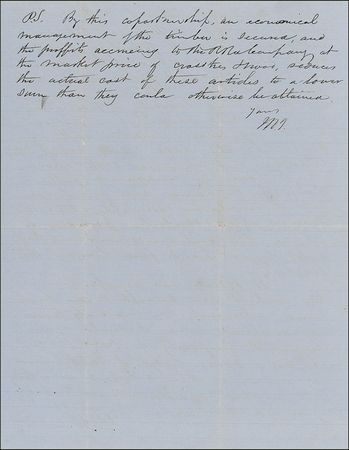 P.S. By this copartnership, an economical
management of the timber is secured, and
the proffits accrueing to the RR Company, at
the market price of crossties & wood, reduces
the actual cost of these articles to a lower
sum than they could otherwise be obtained.
Yours